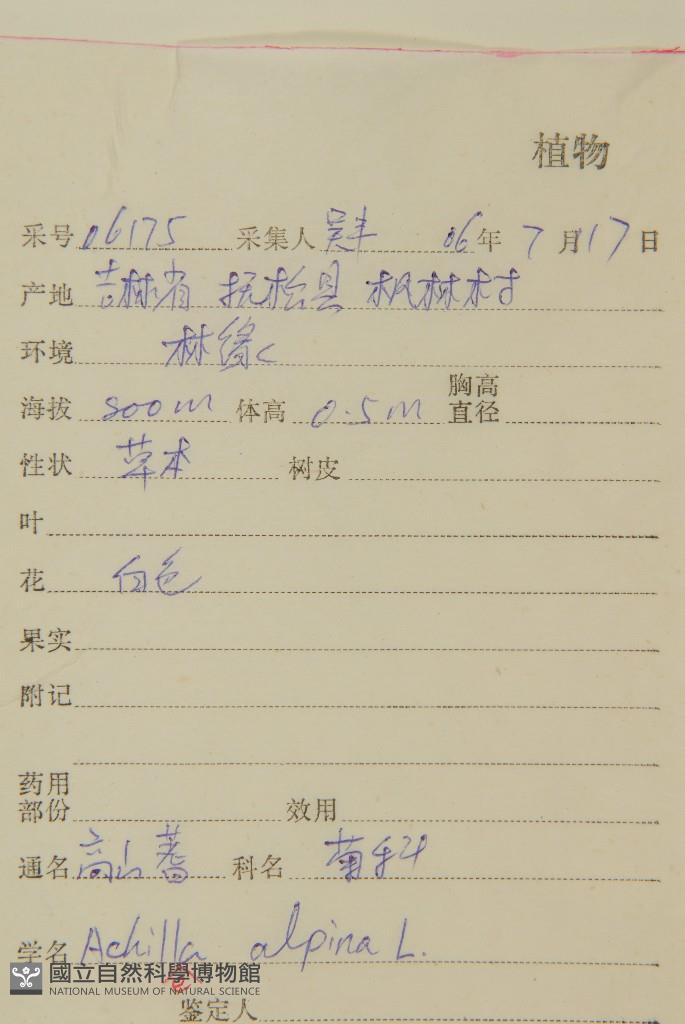 植物
采号 06175 采集人 吴丰 06年7月17日
产地 吉林省 抚松县 枫林村
环境 林缘
海拔 800m 体高 0.5m 胸高直径
性状 草本 树皮
叶
花 白色
果实
附记
药用部份 效用
通名 高山蓍 科名 菊科
学名 Achilla alpina L.
國立自然科學博物館
NATIONAL MUSEUM OF NATURAL SCIENCE
鉴定人